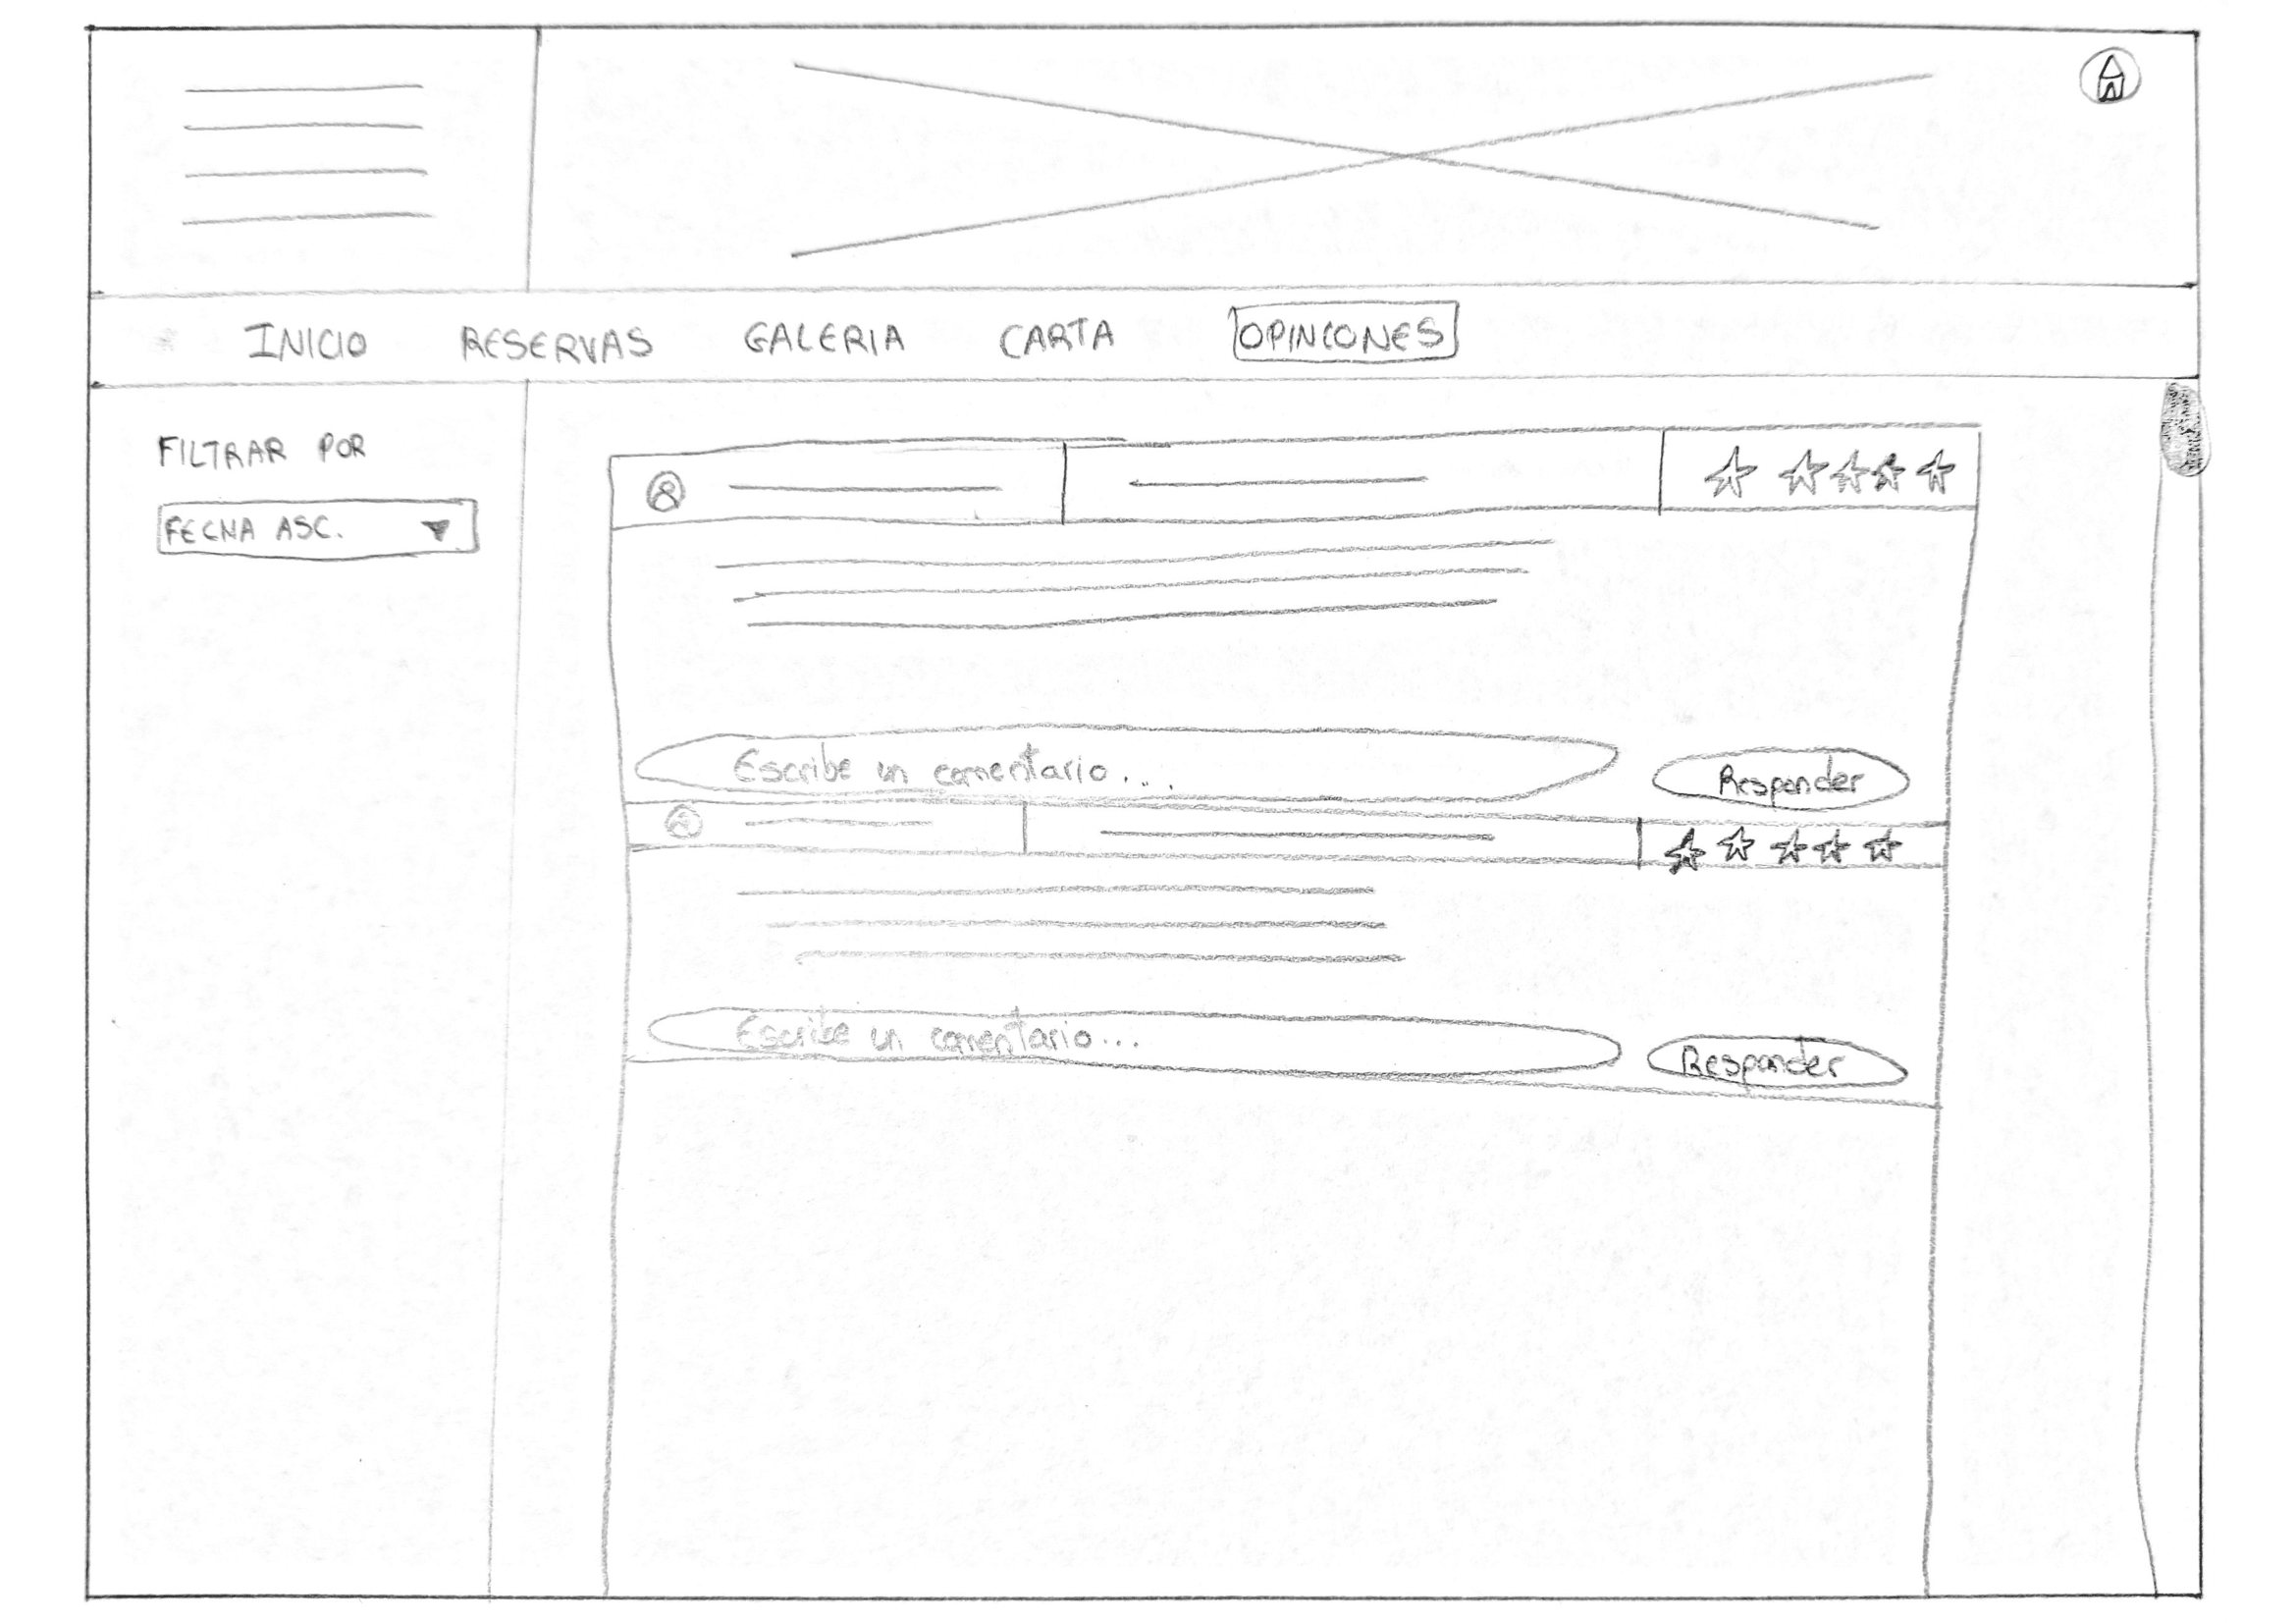 INICIO RESERVAS GALERIA CARTA OPINIONES
FILTRAR POR
FECHA ASC.
Escribe un comentario...
Responder
Escribe un comentario...
Responder